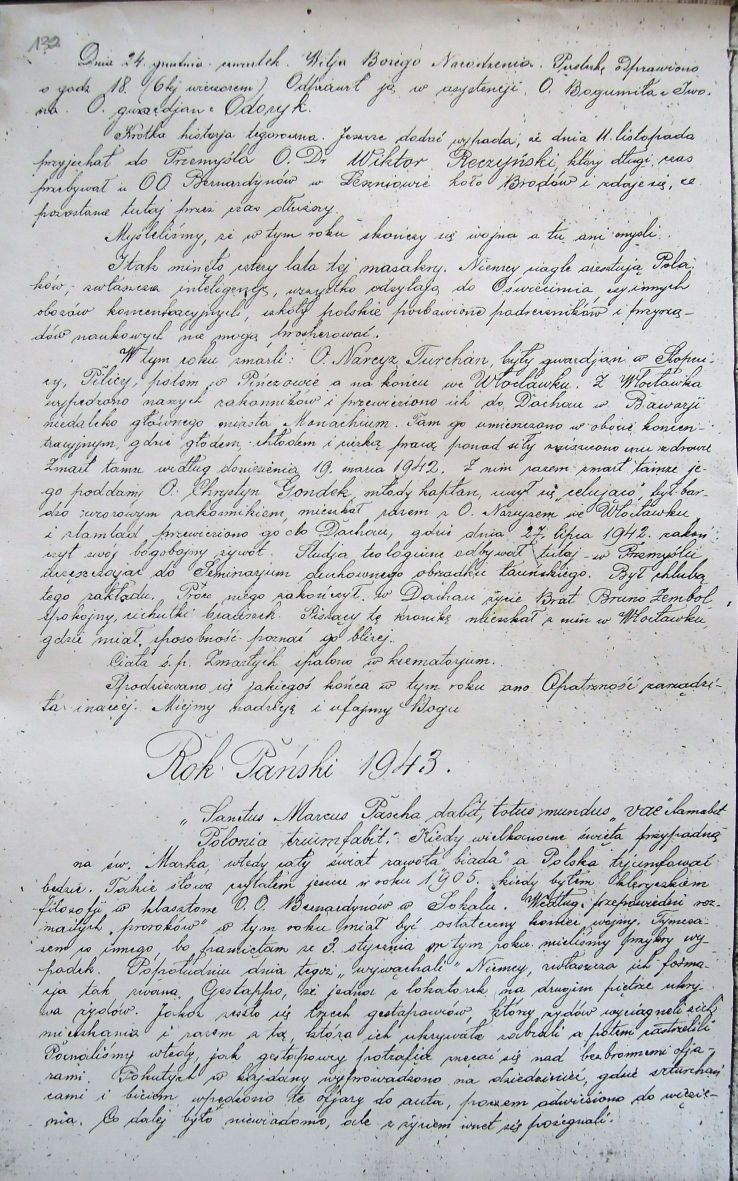 132
Dnia 24. grudnia czwartek. Wilja Bożego Narodzenia. Pasterkę odprawiono
o godz 18. (6tej wieczorem) Odprawił ją w asystencji O. Bogumiła i Iwo-
na. O. gwardjan Odoryk.
Krótka historja tegoroczna. Jeszcze dodać wypada, że dnia 11. listopada
przyjechał do Przemyśla O. Dr Wiktor Reczyński, który długi czas
przebywał u OO. Bernardynów w Leszniowie koło Brodów i zdaje się, że
pozostanie tutaj przez czas dłuższy.
Myśleliśmy, że w tym roku skończy się wojna a tu ani myśli.
I tak minęło cztery lata tej masakry. Niemcy ciągle aresztują Pola-
ków, zwłaszcza inteligencję, wszystko odsyłają do Oświęcimia czy innych
obozów koncentracyjnych, szkoły polskie pozbawione podręczników i przyrzą-
dów naukowych nie mogą
W tym roku zmarli: O. Narcyz Turchan, były gwardjan w Stopni-
cy, Pilicy, potem w Pinczowie a na końcu we Włocławku. Z Włocławka
wypędzono naszych zakonników i przewieziono ich do Dachau w Bawarji
niedaleko głównego miasta Monachium. Tam go umieszczono w obozie koncen-
tracyjnym gdzie głodem, chłodem i ciężką pracą ponad siły zniszczono mu zdrowie
Zmarł tamże według doniesienia 19. marca 1942. Z nim razem zmarł tamże je-
go poddany O. Chrystyn Gondek, młody kapłan, uczył się celująco, był bar-
dzo wzorowym zakonnikiem, mieszkał razem z O. Narcyzem we Włocławku
i stamtąd przewieziono go do Dachau, gdzie dnia 27. lipca 1942. zakoń-
czył swój bogobojny żywot. Studja teologiczne odbywał tutaj w Przemyślu
uczęszczając do Seminarjum duchownego obrządku łacińskiego. Był chlubą
tego zakładu. Prócz niego zakończył w Dachau życie Brat Bruno Zembol
spokojny, cichutki braciszek. Piszący tę kronikę mieszkał z nim w Włocławku
gdzie miał sposobność poznać go bliżej.
Ciała ś.p. Zmarłych spalono w krematorjum.
Spodziewano się jakiegoś końca w tym roku ano Opatrzność zarządzi-
ła inaczej. Miejmy nadzieję i ufajmy Bogu
Rok Pański 1943.
"Sanctus Marcus Pascha dabit, totus mundus "vae" clamabit
Polonia triumfabit." Kiedy wielkanocne święta przypadną
na św. Marka, wtedy cały świat zawoła biada a Polska tryumfować
będzie. Takie słowa czytałem jeszcze w roku 1905, kiedy byłem klerykiem
filozofji w klasztorze O.O. Bernardynów w Sokalu. Według przepowiedni roz-
maitych "proroków" w tym roku miał być ostateczny koniec wojny. Tymcza-
sem co innego bo pamiętam że 3. stycznia w tym roku mieliśmy przykry wy-
padek. Popołudniu dnia tegoż "wywąchali" Niemcy, zwłaszcza ich forma-
cja tak zwana Gestappo, że jedna z lokatorek na drugim piętrze ukry-
wa żydów. Jakoż zeszło się trzech gestapowców, którzy żydów wyciągnęli z ich
mieszkania i razem z tą, która ich ukrywała zabrali a potem rozstrzelali
Poznaliśmy wtedy, jak gestapowcy potrafią znęcać się nad bezbronnemi ofja-
rami. Pokutych w kajdany wyprowadzono na dziedziniec, gdzie szturchań-
cami i biciem wpędzono te ofjary do auta, poczem odwieziono do więzie-
nia. Co dalej było niewiadomo, ale z życiem wnet się pożegnali.